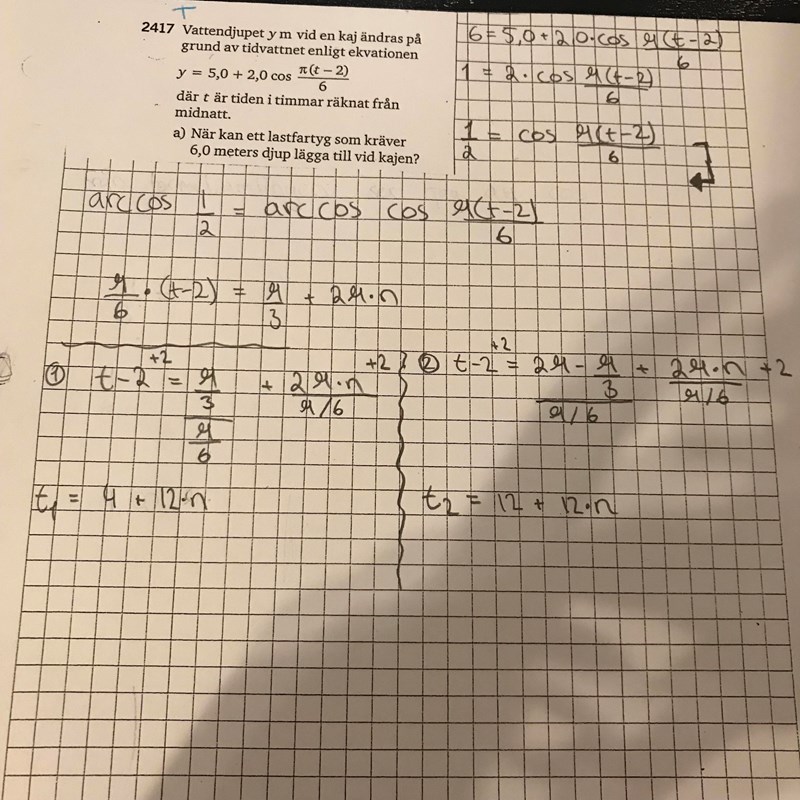 T
2417 Vattendjupet y m vid en kaj ändras på
grund av tidvattnet enligt ekvationen
y = 5,0 + 2,0 cos π(t − 2)/6
där t är tiden i timmar räknat från
midnatt.
a) När kan ett lastfartyg som kräver
6,0 meters djup lägga till vid kajen?
6 = 5,0 + 2,0 · cos π(t−2)/6
1 = 2 · cos π(t−2)/6
1/2 = cos π(t−2)/6
arccos 1/2 = arccos cos π(t−2)/6
π/6 · (t−2) = π/3 + 2π·n
① t−2 +2 = π/3 / π/6 + 2π·n / π/6 +2
② t−2 +2 = 2π − π/3 / π/6 + 2π·n / π/6 +2
t1 = 4 + 12·n
t2 = 12 + 12·n